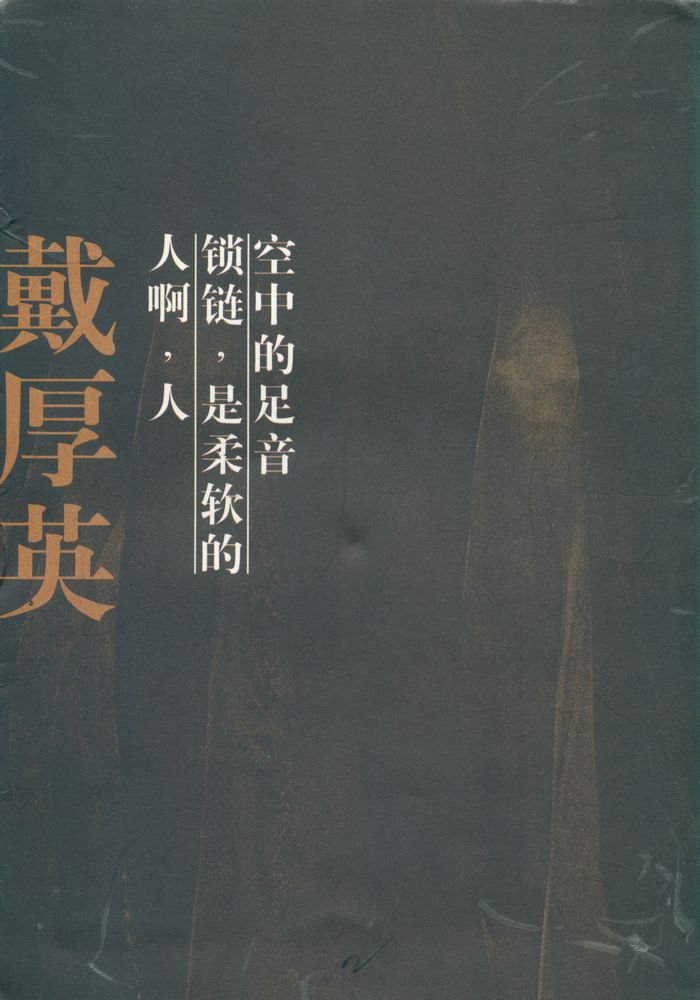 空中的足音
锁链，是柔软的
人啊，人
戴厚英